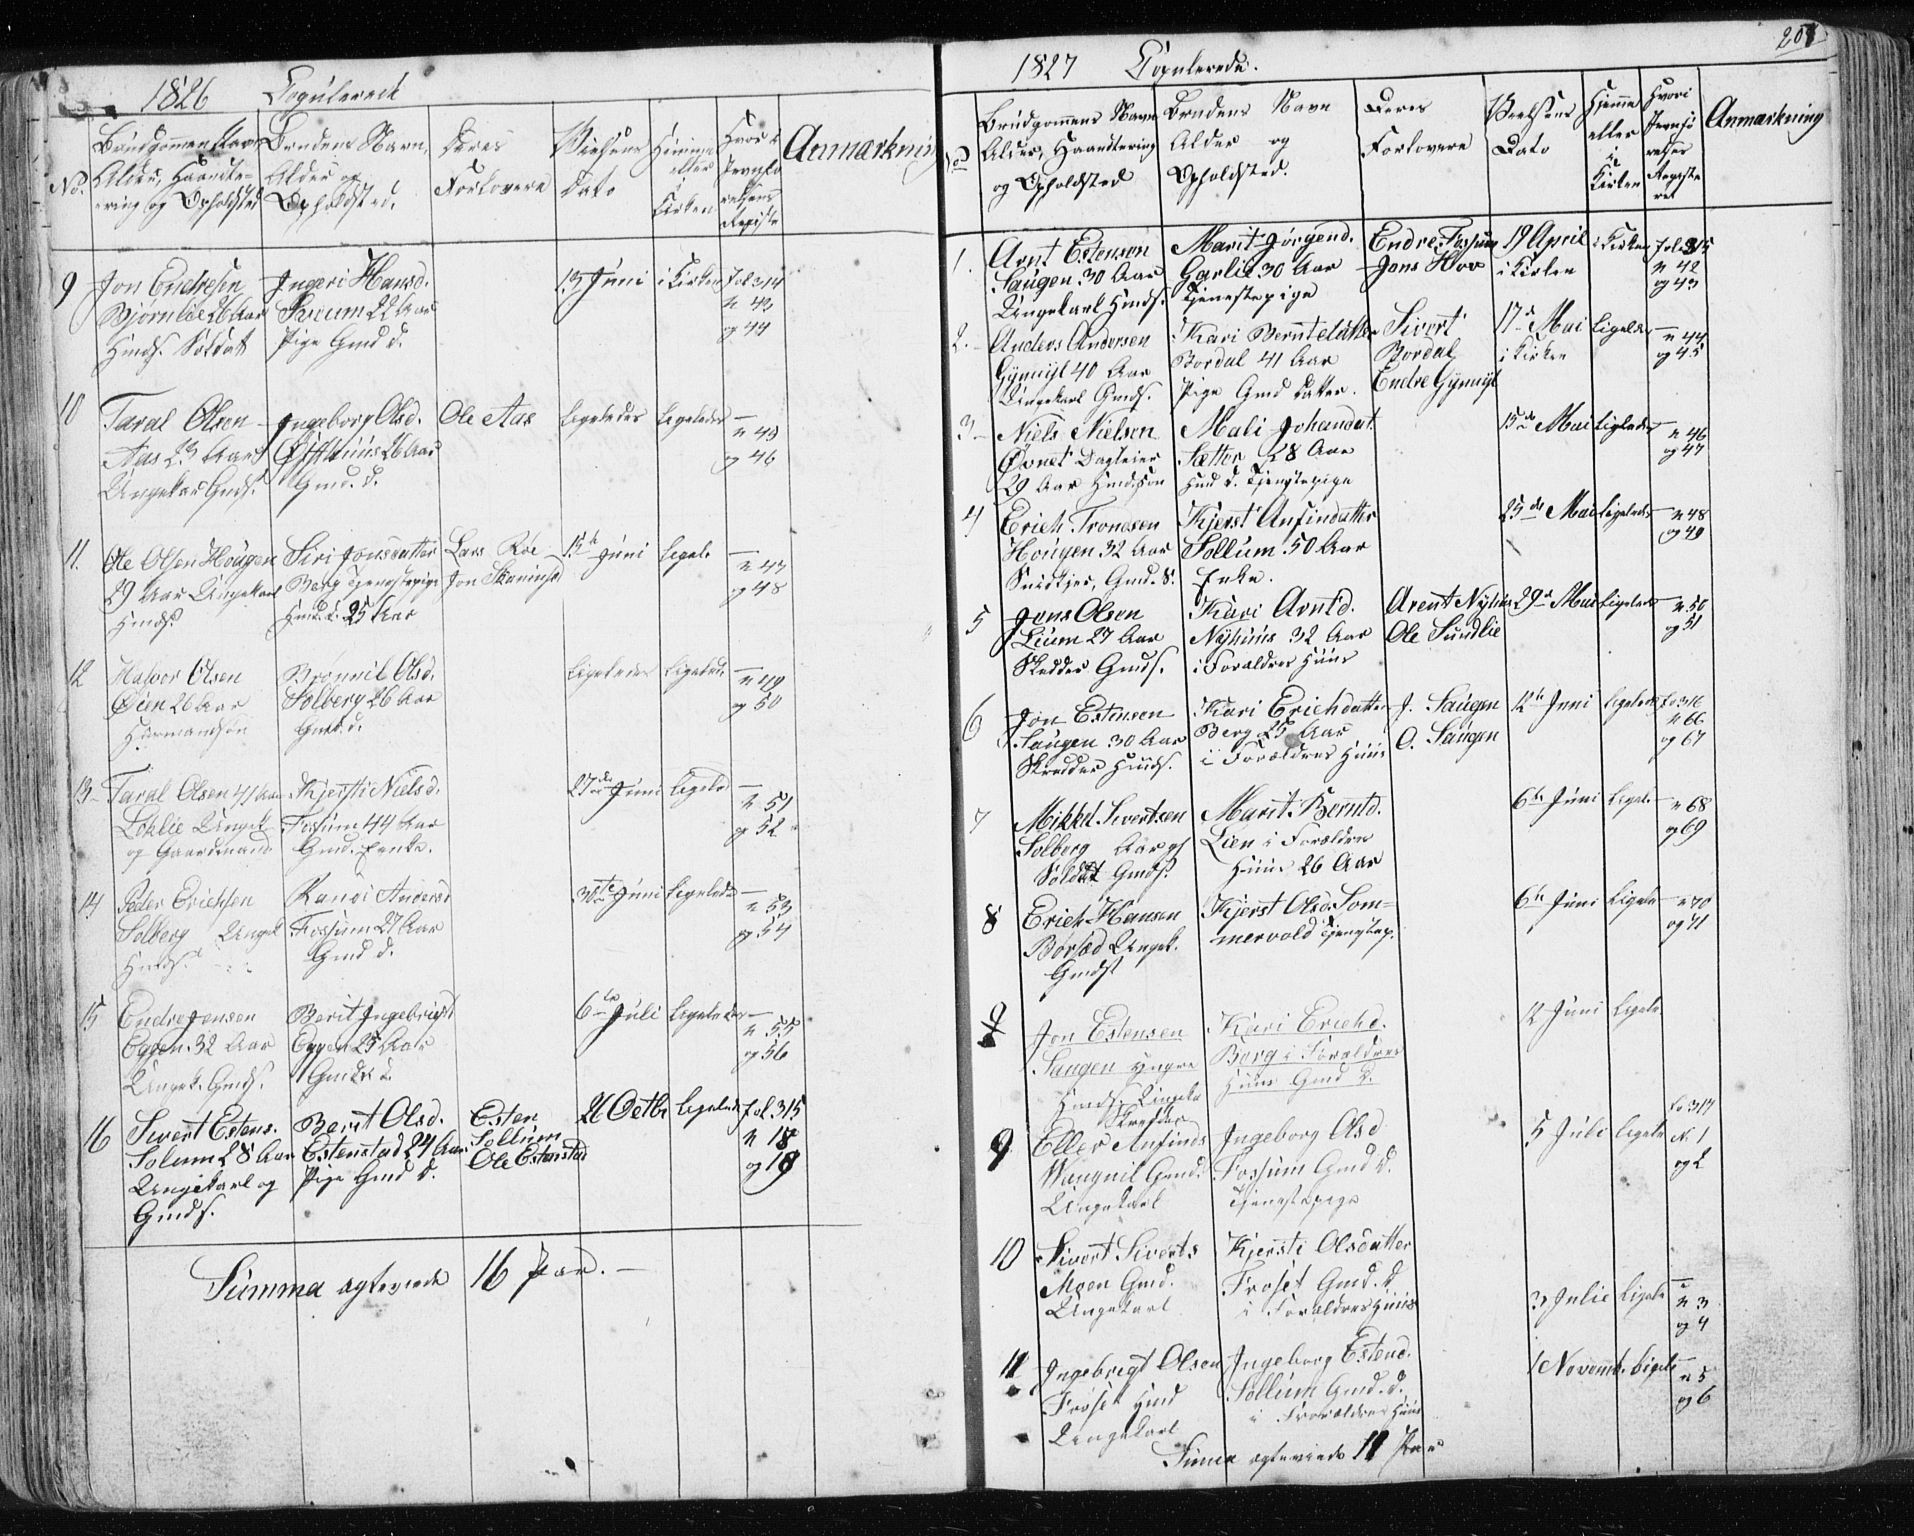 1826 Copulerede
No.
Brudgommens Navn
Alder, Haandte-
ring og Opholdsted
Brudens Navn,
Alder og
Opholdsted.
Deres
Forlovere
Vielsens
Dato
Hjemme
eller
i
Kirken
Hvor i
Jevnfø
relsens
Registe
Anmærkning
9 Jon Endresen
Bjørnlie 26 Aar
Hmds. Soldat
Ingeri Hansd.
22 Aar
Pige Gmd d.
13 Juni
i Kirken
fol 314
n 43
og 44
10 Taral Olsen
Aas 23 Aar
Ungekar Gmds.
Ingeborg Olsd.
Østhuus 26 Aar
Gmd. d.
Ole Aas
Ligeledes
Ligeledes
n 45
og 46
11. Ole Olsen Hougen
29 Aar Ungekarl
Hmds.
Siri Jonsdatter
Berg Tjenestepige
Hmd. d. 25 Aar
Lars Roe
Jon
15de Juni
Ligele
n 47
og 48
12 Halvor Olsen
Øien 26 Aar
Huusmandsøn
Olsd.
Solberg 26 Aar
Gmd. d.
Ligeledes
Ligeled.
n 49
og 50
13 Taral Olsen 41 Aar
Loklie Ungek
og Gaardmand
Kjersti Nielsd.
Fossum 44 Aar
Gmd. Enke.
27de Juni
Ligeled
n 51
og 52
14 Peder Erichsen
Solberg Ungek
Hmds.
Randi Andersd
Fossum 27 Aar
Gmd d.
30te Juni
Ligeled
n 53
og 54
15 Endre Jensen
Eggen 32 Aar
Ungek. Gmds.
Berit Ingebrigtd
Eggen 25 Aar
Gmds d.
6te Juli
Ligeledes
n 55
og 56
16 Sivert Estens.
Solum 28 Aar
Ungekarl og
Gmds.
Berit Olsd.
Estenstad 24 Aar
Pige Gmd d.
Esten
Sollum
Ole Estenstad
26 Octbr
Ligeled
fol 315
n 18
og 19
Summa egteviede 16 Par.
1827 Copulerede.
201
No
Brudgommens Navn
Alder, Haandtering
og Opholdsted
Brudens Navn
Alder og
Opholdsted.
Deres
Forlovere
Vielsens
Dato
Hjemme
eller
i
Kirken
Hvori
Jevnfø
relses
Registe
ret
Anmærkning
1. Arnt Estensen
Saugen 30 Aar
Ungekarl Hmds.
Marit Jørgend.
Garlie 30 Aar
Tjenestepige
Endre Fossum
Jens Hov
19 April
i Kirken
i Kirken
fol 315
n 42
og 43
2. Anders Andersen
40 Aar
Ungekarl Gmds.
Kari Berntsdatter
Bordal 41 Aar
Pige Gmd Datter.
Sivert
Bordal
Endre
17de Mai
i Kirken
Ligeledes
n 44
og 45
3 Niels Nielsen
Øvnet Dagleier
29 Aar Hmdsøn
Mali Johandat.
Sætter 28 Aar
Hmd d. Tjenestepige
15de Mai
Ligeledes
n 46
og 47
4 Erich Tronesen
Hougen 32 Aar
Snidkjer, Gmd. S.
Kjerst Anfindatter
Sollum 50 Aar
Enke.
25de Mai
Ligeledes
n 48
og 49
5 Jens Olsen
Lium 27 Aar
Skredder Gmds.
Kari Arntd.
Nyhuus 32 Aar
i Forældres Huus
Arent Nyhus
Ole Sundlie
29de Mai
Ligeledes
n 50
og 51
6 Jon Estensen
Saugen 30 Aar
Skredder Hmds.
Kari Erichdatter
Berg 25 Aar
i Forældres Huus
J. Saugen
O. Saugen
12te Juni
Ligeledes
fo 316
n 66
og 67
7 Mikkel Sivertsen
Solberg Aar
Soldat Gmds.
Marit Berntd.
Lien i Forældres
Huus 26 Aar
6te Juni
Ligele
n 68
og 69
8 Erich Hansen
Borsed Ungek.
Gmds
Kjerst Olsd. Som-
mervold Tjenestep.
6te Juni
Ligele
n 70
og 71
9
Jon Estensen
Saugen yngre
Hmds. Ungek
Skredder
Kari Erichd.
Berg i Forældres
Huus Gmd d.
12 Juni
Ligele
9 Eller Anfinds
Gmd.
Ungekarl
Ingeborg Olsd
Fossum Gmd d.
Tjenestepige
5 Juli
Ligele
fo 317
N. 1
og 2
10 Sivert Siverts
Moen Gmd.
Ungekarl
Kjersti Olsdatter
Froset Gmd. d
i Forældres Huus
3 Julie
Ligele
n 3
og 4
11 Ingebrigt Olsen
Froset Hmd
Ungekarl
Ingeborg Estend.
Sollum Gmd. d.
i Forældres Huus
1 Novemb.
Ligele
n 5
og 6
Suma egteviede 11 Par